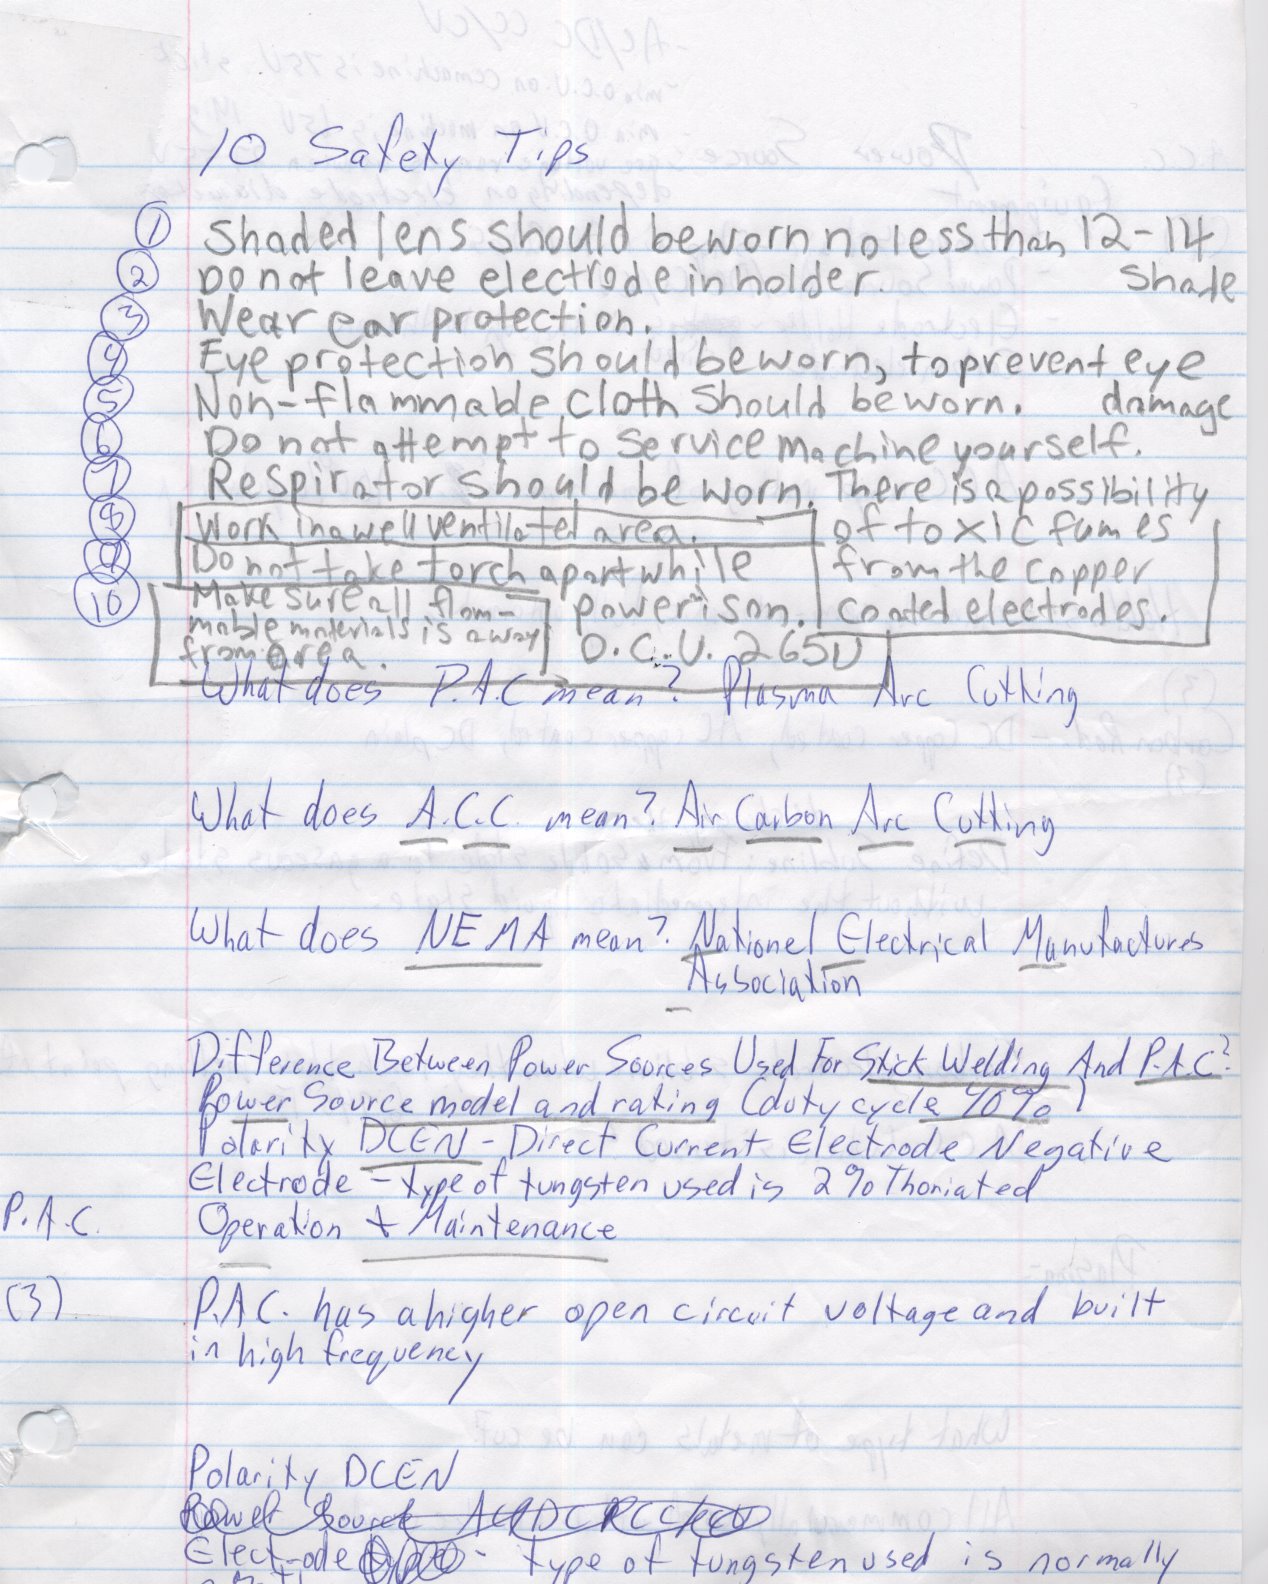 10 Safety Tips
1 Shaded lens should be worn no less than 12-14
Shade
2 Do not leave electrode in holder.
3 Wear ear protection.
4 Eye protection should be worn, to prevent eye
damage
5 Non-flammable cloth should be worn.
6 Do not attempt to service machine yourself.
7 Respirator should be worn. There is a possibility
of toxic fumes
from the copper
coated electrodes.
8 Work in a well ventilated area.
9 Do not take torch apart while
power is on.
10 Make sure all flam-
mable materials is away
from area.
O.C.V. 265V
What does P.A.C mean? Plasma Arc Cutting
What does A.C.C. mean? Air Carbon Arc Cutting
What does NEMA mean? Nationel Electrical Manufactures
Association
Difference Between Power Sources Used For Stick Welding And P.A.C?
Power Source model and rating (duty cycle 40%)
Polarity DCEN - Direct Current Electrode Negative
Electrode - type of tungsten used is 2% Thoriated
P.A.C. Operation + Maintenance
(3) P.A.C. has a higher open circuit voltage and built
in high frequency
Polarity DCEN
Power Source
Electrode - type of tungsten used is normally